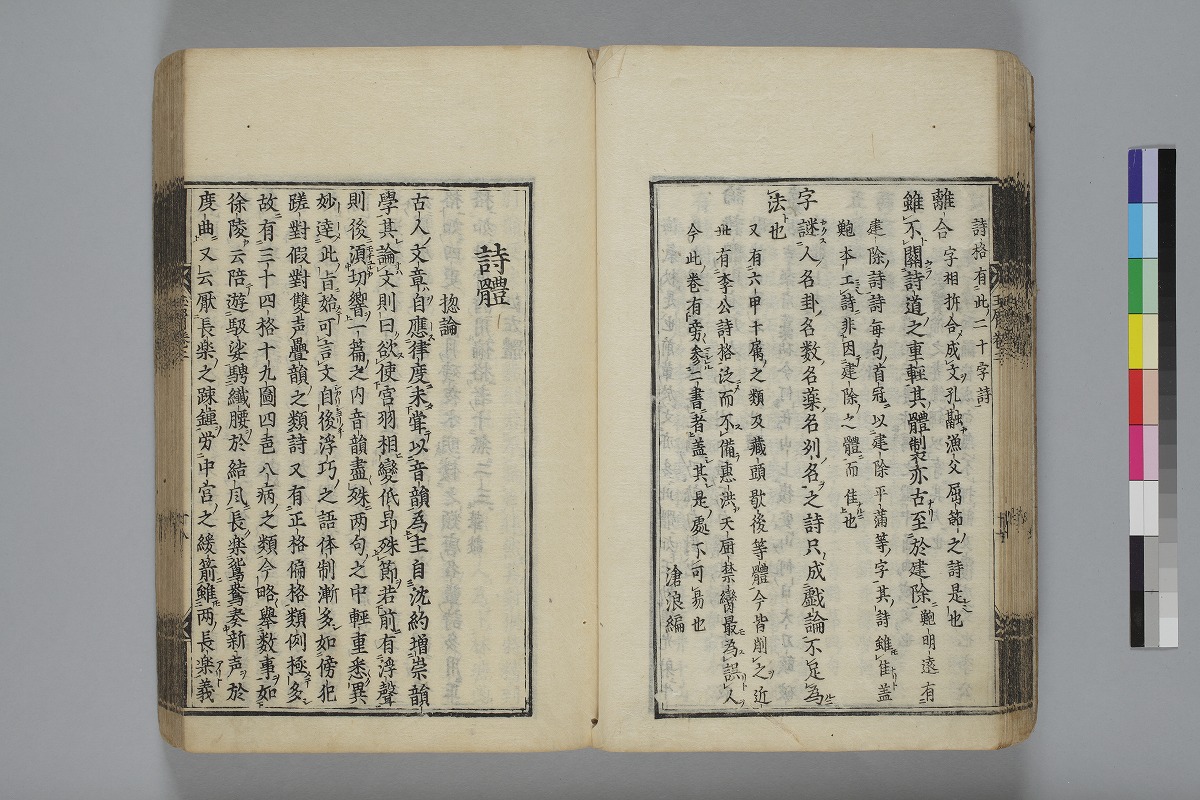 詩格有此二十字詩
離合字相拆合成文孔融漁父屈節之詩是也
雖不關詩道之重輕其體製亦古至於建除鮑明遠有
建除詩詩每句首冠以建除平滿等字其詩雖佳蓋
鮑本工詩非因建除之體而佳也
字謎人名卦名数名薬名列名之詩只成戯論不足為
法也
又有六甲十属之類及藏頭歇後等體今皆削之近
世有李公詩格泛而不備惠洪天厨禁臠最為誤人
今此卷有旁參二書者蓋其是處不可易也
滄浪編
詩體
揔論
古人文章自應律度未甞以音韻為主自沈約増崇韻
學其論文則曰欲使宮羽相變低昻殊節若前有浮聲
則後湏切響一篇之内音韻盡殊两句之中輕重悉異
妙達此旨始可言文自後浮巧之語体制漸多如傍犯
蹉對假對雙声疊韻之類詩又有正格偏格類例極多
故有三十四格十九圖四声八病之類今略舉数事如
徐陵云陪遊馺娑騁纖腰於結風長楽鴛鴦奏新声於
度曲又云厭長楽之踈鍾労中宮之緩箭雖两長楽義